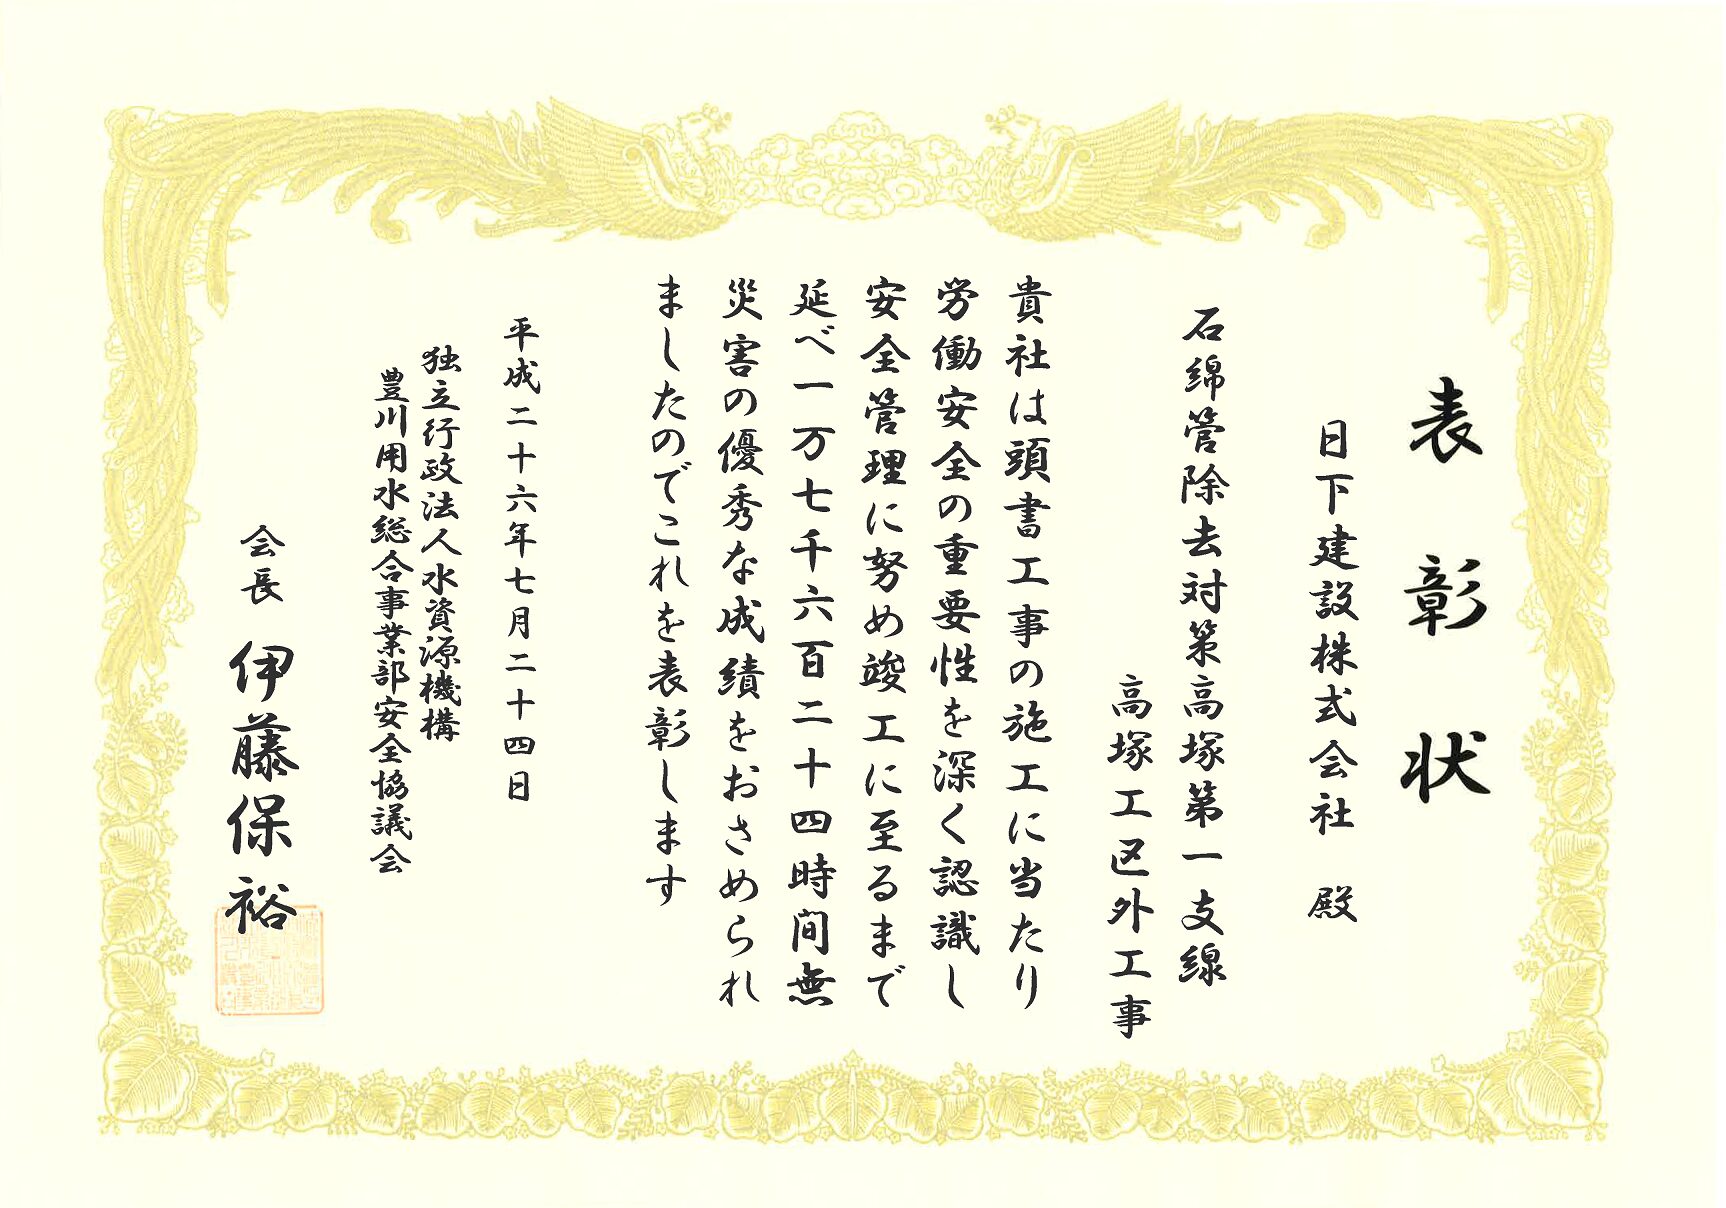 表彰状
日下建設株式会社 殿
石綿管除去対策高塚第一支線
高塚工区外工事
貴社は頭書工事の施工に当たり
労働安全の重要性を深く認識し
安全管理に努め竣工に至るまで
延べ一万七千六百二十四時間無
災害の優秀な成績をおさめられ
ましたのでこれを表彰します
平成二十六年七月二十四日
独立行政法人水資源機構
豊川用水総合事業部安全協議会
会長 伊藤保裕